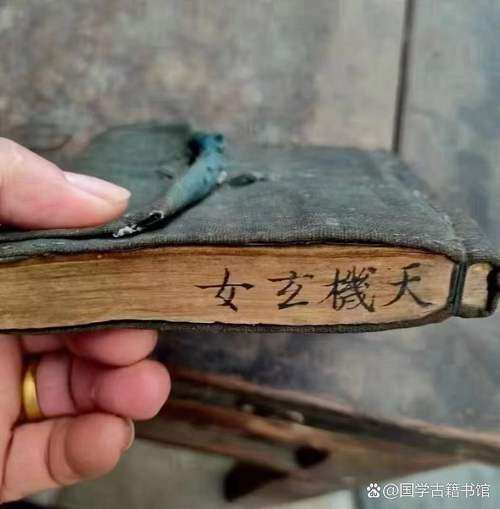 天機玄女
@国学古籍书馆